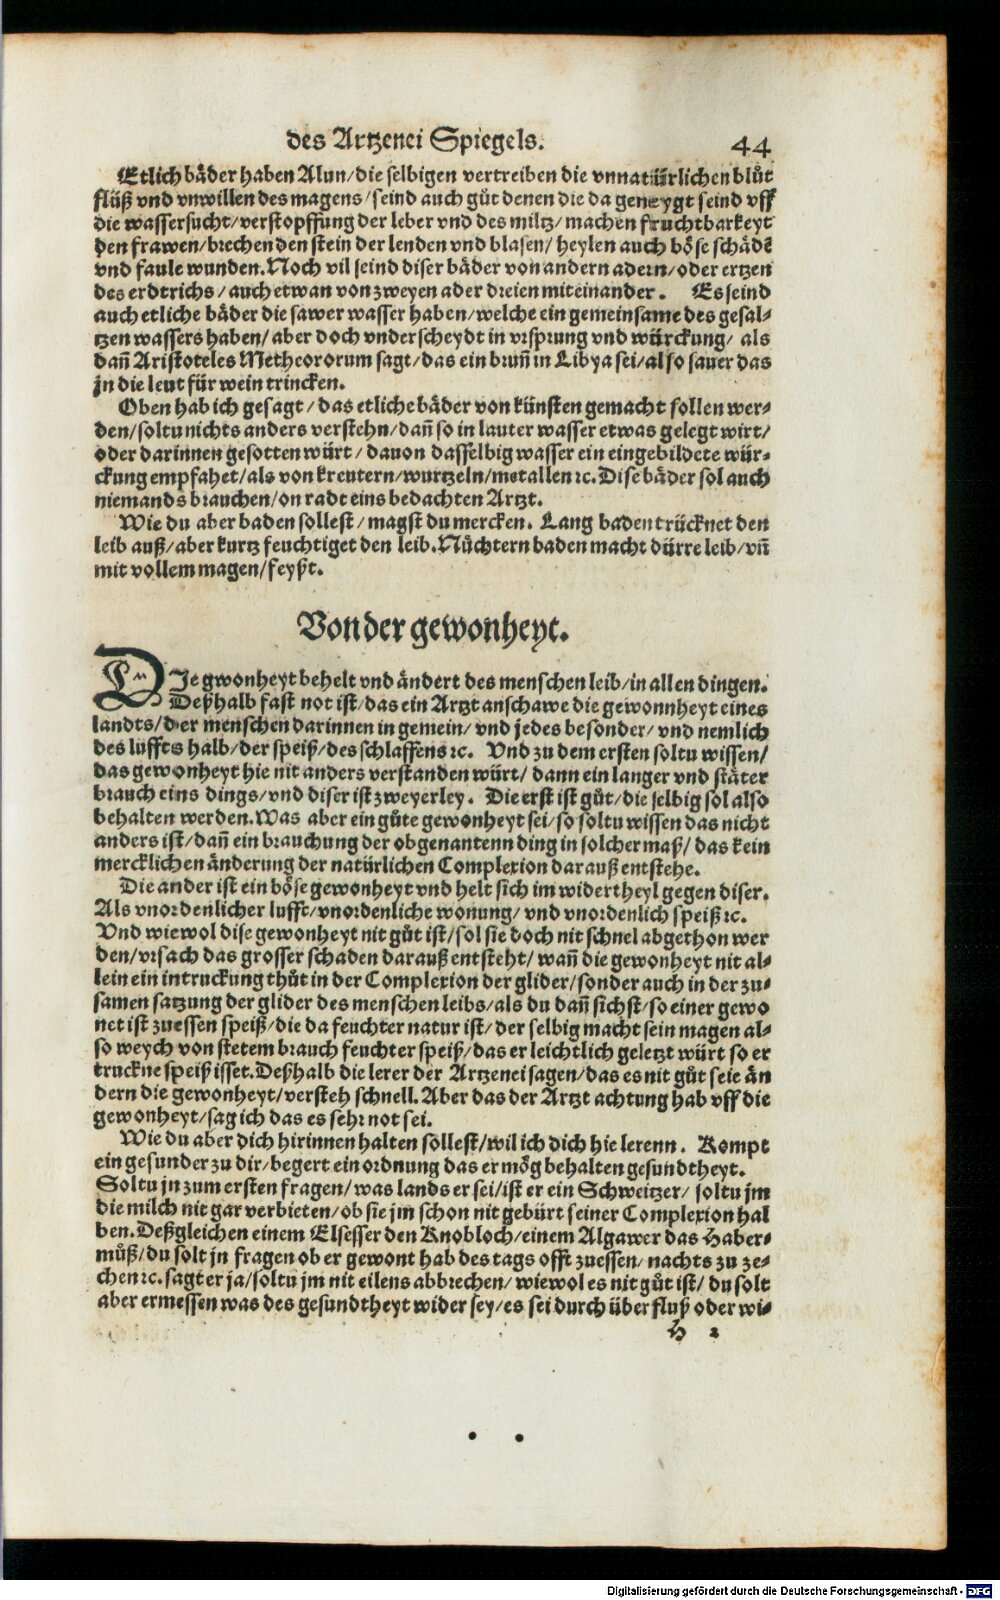 des Artzenei Spiegels. 44
Etlich bäder haben Alun/die selbigen vertreiben die vnnatürlichen blůt
flüß vnd vnwillen des magens/seind auch gůt denen die da geneygt seind vff
die wassersucht/verstopffung der leber vnd des miltz/machen fruchtbarkeyt
den frawen/brechen den stein der lenden vnd blasen/heylen auch böse schädē
vnd faule wunden. Noch vil seind diser bäder von andern adern/oder ertzen
des erdtrichs/auch etwan von zweyen ader dreien miteinander. Es seind
auch etliche bäder die sawer wasser haben/welche ein gemeinsame des gesal-
tzen wassers haben/aber doch vnderscheydt in vrsprung vnd würckung/als
dañ Aristoteles Metheororum sagt/das ein bruñ in Libya sei/also sauer das
jn die leut für wein trincken.
Oben hab ich gesagt/das etliche bäder von künsten gemacht sollen wer-
den/soltu nichts anders verstehn/dañ so in lauter wasser etwas gelegt wirt/
oder darinnen gesotten würt/dauon dasselbig wasser ein eingebildete wür-
ckung empfahet/als von kreutern/wurtzeln/metallen ꝛc. Dise bäder sol auch
niemands brauchen/on radt eins bedachten Artzt.
Wie du aber baden sollest/magst du mercken. Lang baden trücknet den
leib auß/aber kurtz feuchtiget den leib. Nüchtern baden macht dürre leib/vñ
mit vollem magen/feyßt.
Von der gewonheyt.
DJe gwonheyt behelt vnd ändert des menschen leib/in allen dingen.
Deßhalb fast not ist/das ein Artzt anschawe die gewonnheyt eines
landts/der menschen darinnen in gemein/vnd jedes besonder/vnd nemlich
des luffts halb/der speiß/des schlaffens ꝛc. Vnd zu dem ersten soltu wissen/
das gewonheyt hie nit anders verstanden würt/dann ein langer vnd stäter
brauch eins dings/vnd diser ist zweyerley. Die erst ist gůt/die selbig sol also
behalten werden. Was aber ein gůte gewonheyt sei/so soltu wissen das nicht
anders ist/dañ ein brauchung der obgenantenn ding in solcher maß/das kein
mercklichen änderung der natürlichen Complexion darauß entstehe.
Die ander ist ein böse gewonheyt vnd helt sich im widertheyl gegen diser.
Als vnordenlicher lufft/vnordenliche wonung/vnd vnordenlich speiß ꝛc.
Vnd wiewol dise gewonheyt nit gůt ist/sol sie doch nit schnel abgethon wer
den/vrsach das grosser schaden darauß entsteht/wañ die gewonheyt nit al-
lein ein intruckung thůt in der Complexion der glider/sonder auch in der zu-
samen satzung der glider des menschen leibs/als du dañ sichst/so einer gewo
net ist zuessen speiß/die da feuchter natur ist/der selbig macht sein magen al-
so weych von stetem brauch feuchter speiß/das er leichtlich geletzt würt so er
truckne speiß isset. Deßhalb die lerer der Artzenei sagen/das es nit gůt seie än
dern die gewonheyt/versteh schnell. Aber das der Artzt achtung hab vff die
gewonheyt/sag ich das es sehr not sei.
Wie du aber dich hirinnen halten sollest/wil ich dich hie lerenn. Kompt
ein gesunder zu dir/begert ein ordnung das er mög behalten gesundtheyt.
Soltu jn zum ersten fragen/was lands er sei/ist er ein Schweitzer/soltu jm
die milch nit gar verbieten/ob sie jm schon nit gebürt seiner Complexion hal
ben. Deßgleichen einem Elsesser den Knobloch/einem Algawer das Haber-
můß/du solt jn fragen ob er gewont hab des tags offt zuessen/nachts zu ze-
chen ꝛc. sagt er ja/soltu jm nit eilens abbrechen/wiewol es nit gůt ist/du solt
aber ermessen was des gesundtheyt wider sey/es sei durch überfluß oder wi-
H 2
Digitalisierung gefördert durch die Deutsche Forschungsgemeinschaft - DFG